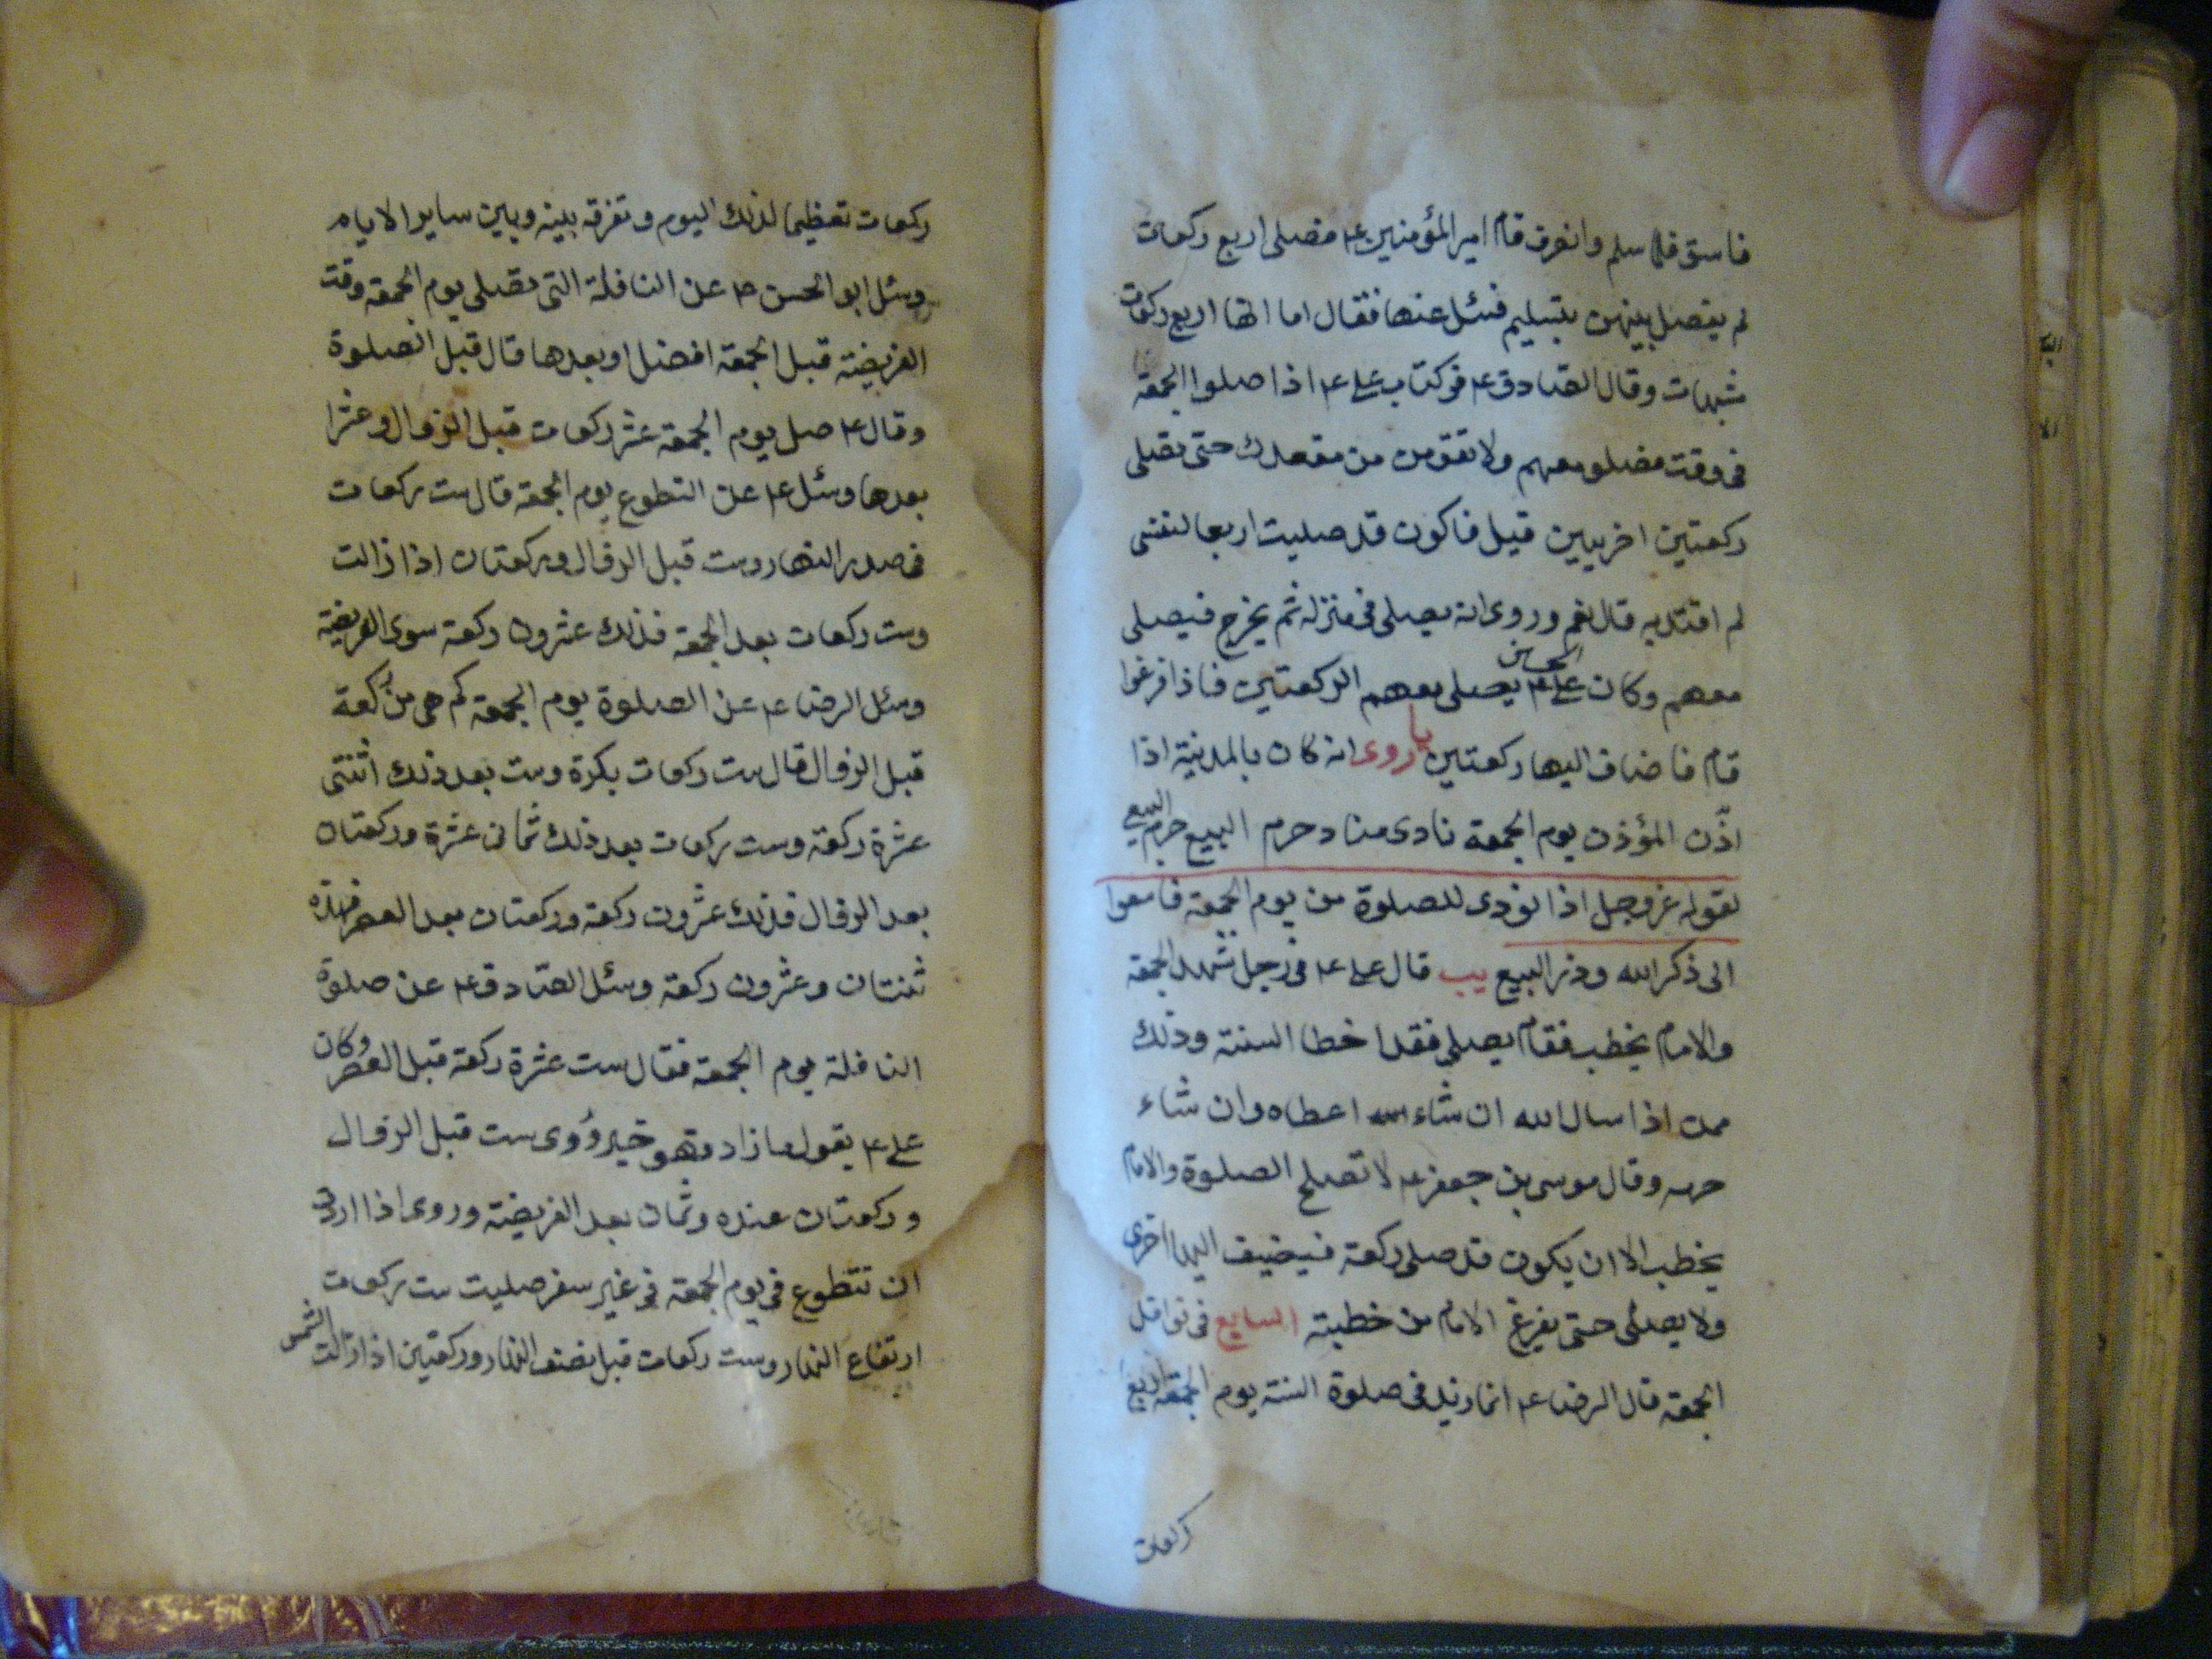 فاسق فلما سلم وانصرف قام امير المؤمنين ع فصلى اربع ركعات
لم يفصل بينهن بتسليم فسئل عنها فقال اما انها اربع ركعات
مشبهات وقال الصادق ع فى كتاب على ع اذا صلوا الجمعة
فى وقت فصلو معهم ولا تقومن من مقعدك حتى تصلى
ركعتين اخريين قيل فاكون قد صليت اربعا لنفسى
لم اقتد به قال نعم وروى انه يصلى فى منزله ثم يخرج فيصلى
معهم وكان على بن الحسين ع يصلى معهم الركعتين فاذا فرغوا
قام فاضاف اليها ركعتين يا روى انه كان بالمدينة اذا
اذّن المؤذن يوم الجمعة نادى مناد حرم البيع حرم البيع
لقوله عز وجل اذا نودى للصلوة من يوم الجمعة فاسعوا
الى ذكر الله وذر البيع يب قال على ع فى رجل شهد الجمعة
والامام يخطب فقام يصلى فقد اخطا السنة وذلك
ممن اذا سال الله ان شاء الله اعطاه وان شاء
حرمه وقال موسى بن جعفر ع لا تصلح الصلوة والامام
يخطب الا ان يكون قد صلى ركعة فيضيف اليها اخرى
ولا يصلى حتى يفرغ الامام من خطبته السابع فى نوافل
الجمعة قال الرضا ع انما زيد فى صلوة السنة يوم الجمعة اربع
ركعات
ركعات تعظيما لذلك اليوم وتفرقة بينه وبين ساير الايام
وسئل ابو الحسن ع عن النافلة التى تصلى يوم الجمعة وقت
الفريضة قبل الجمعة افضل او بعدها قال قبل الصلوة
وقال ع صل يوم الجمعة عشر ركعات قبل الزوال وعشرا
بعدها وسئل ع عن التطوع يوم الجمعة قال ست ركعات
فى صدر النهار وست قبل الزوال وركعتان اذا زالت
وست ركعات بعد الجمعة فذلك عشرون ركعة سوى الفريضة
وسئل الرضا ع عن الصلوة يوم الجمعة كم هى من ركعة
قبل الزوال قال ست ركعات بكرة وست بعد ذلك اثنتى
عشرة ركعة وست ركعات بعد ذلك ثمانى عشرة وركعتان
بعد الزوال فذلك عشرون ركعة وركعتان بعد العصر فهذه
ثنتان وعشرون ركعة وسئل الصادق ع عن صلوة
النافلة يوم الجمعة فقال ست عشرة ركعة قبل العصر وكان
على ع يقول ما زاد فهو خير وروى ست قبل الزوال
وركعتان عنده وثمان بعد الفريضة وروى اذا اردت
ان تتطوع فى يوم الجمعة فى غير سفر صليت ست ركعات
ارتفاع النهار وست ركعات قبل نصف النهار وركعتين اذا زالت الشمس